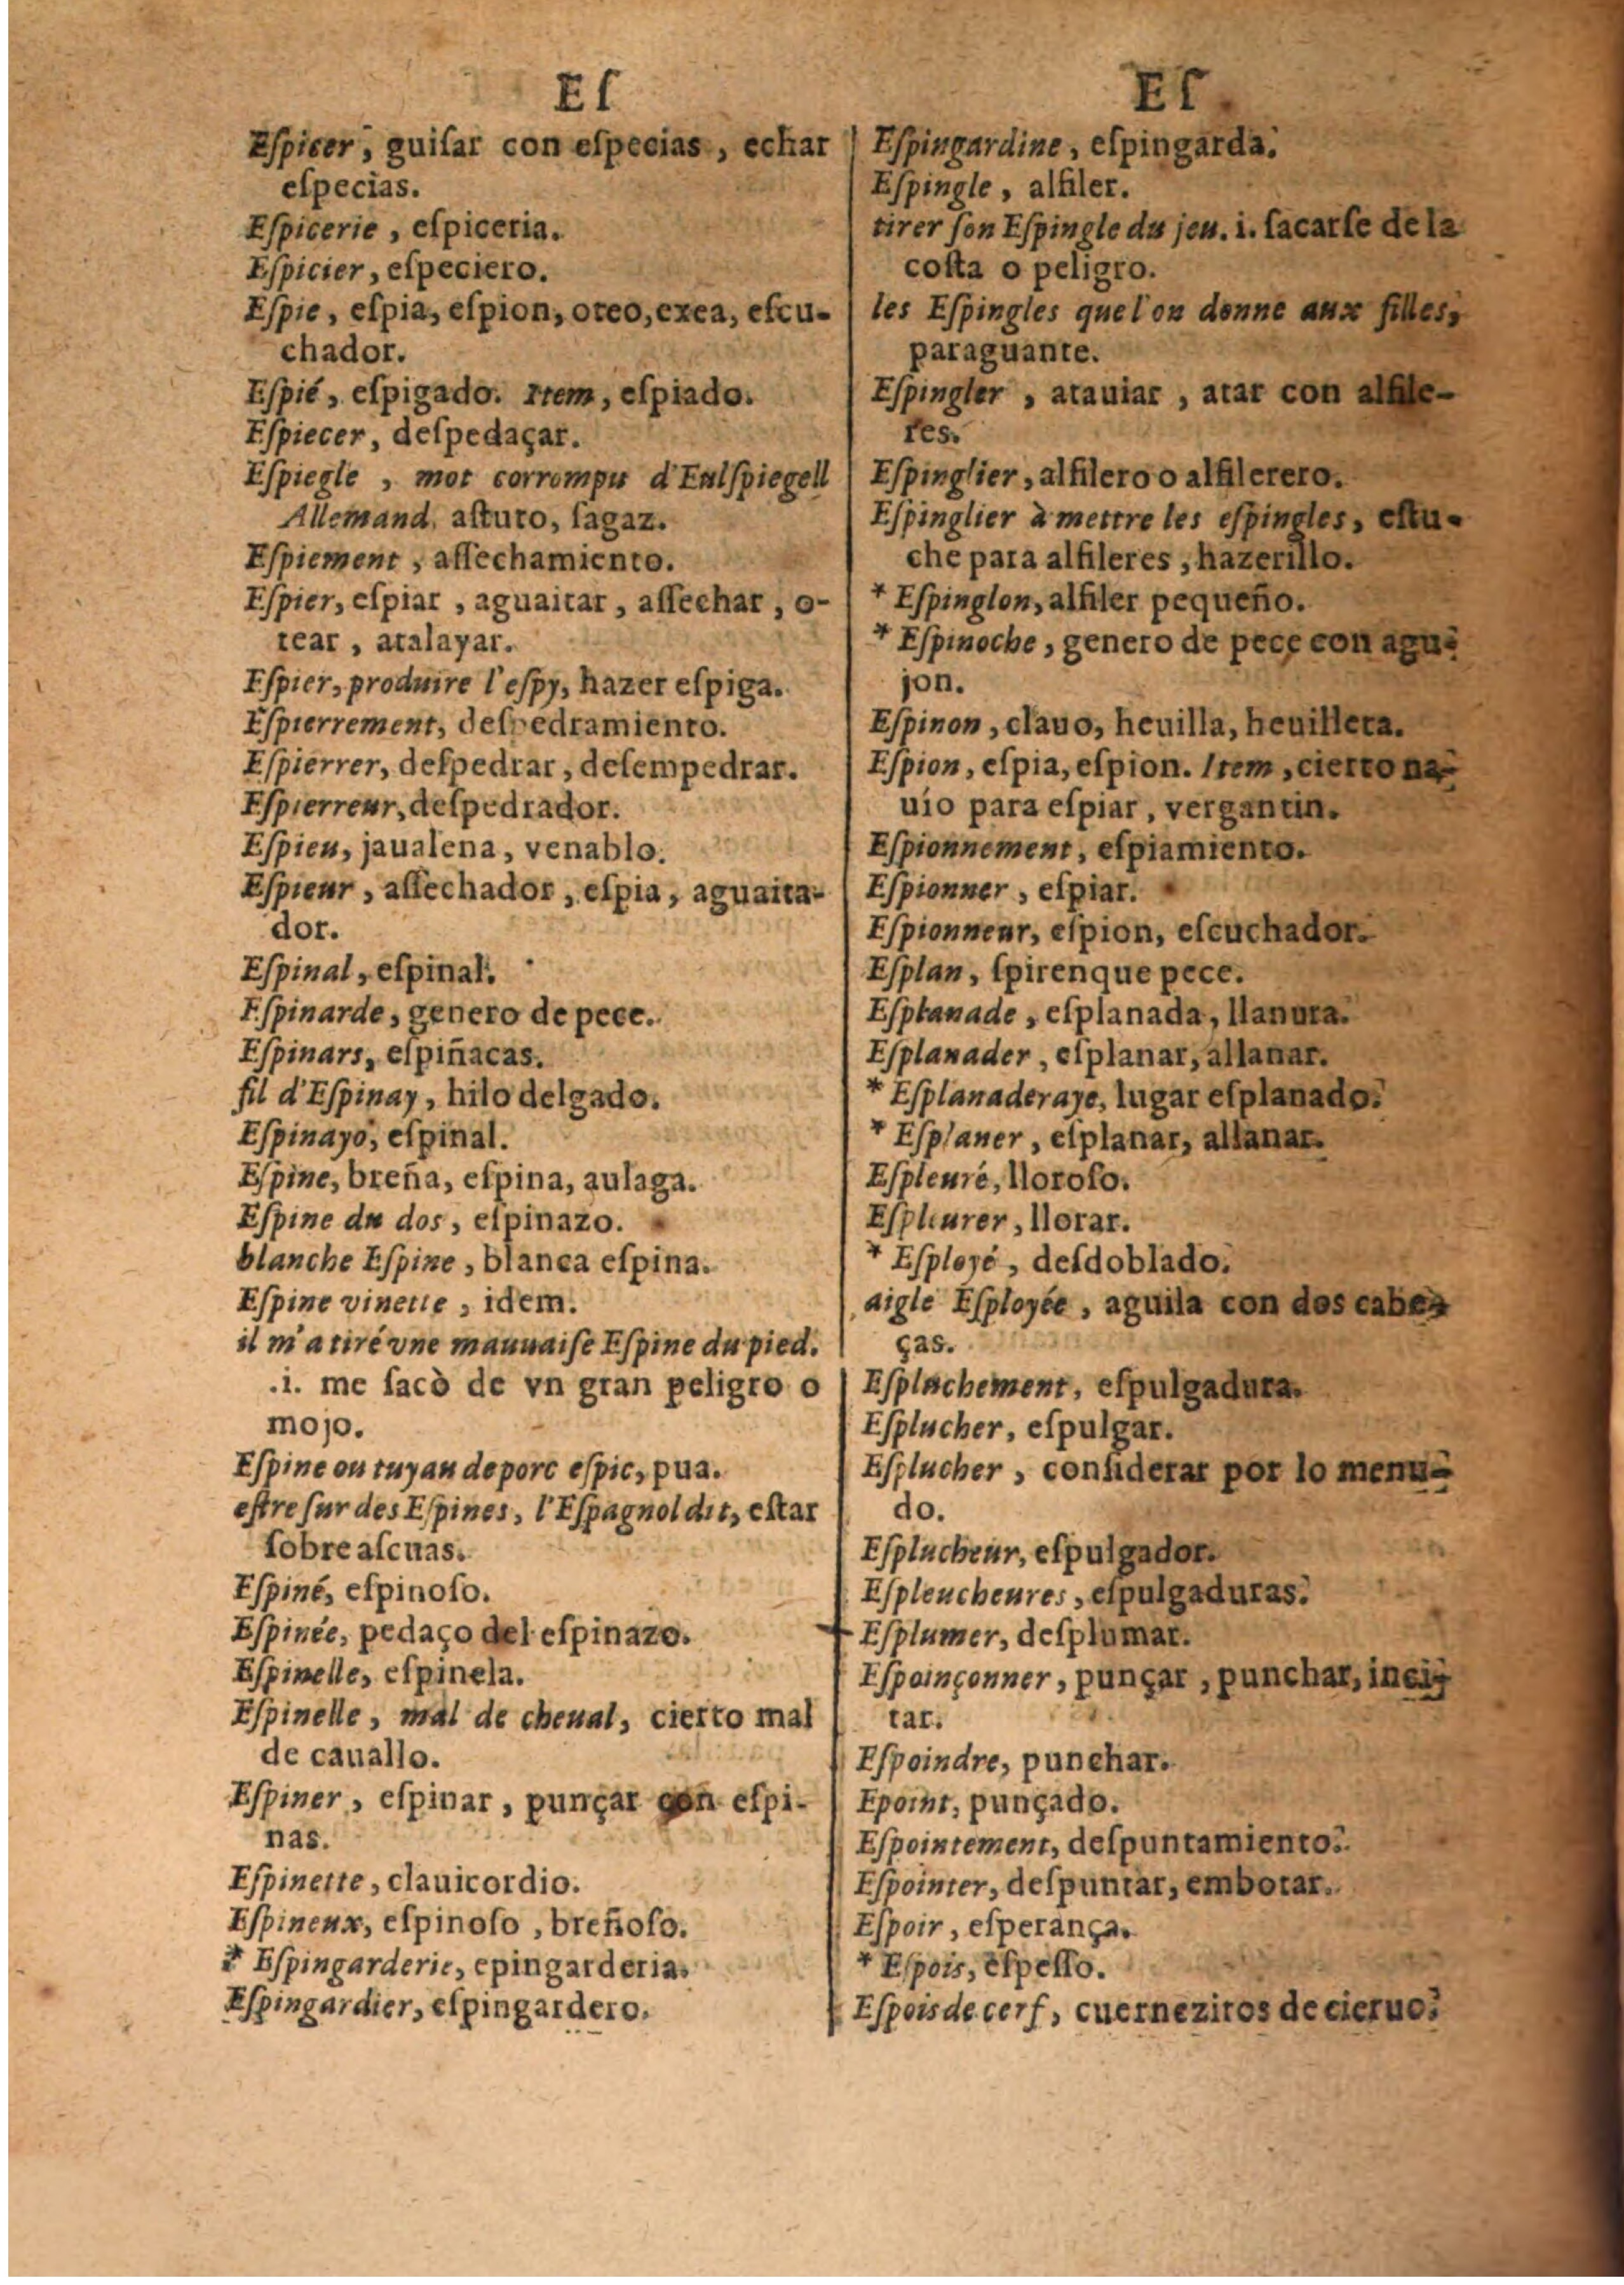 Eſ
Eſpicer, guiſar con eſpecias, echar
eſpecias.
Eſpicerie, eſpiceria.
Eſpicier, eſpeciero.
Eſpie, eſpia, eſpion, oteo, exea, eſcu-
chador.
Eſpié, eſpigado. Item, eſpiado.
Eſpiecer, deſpedaçar.
Eſpiegle, mot corrompu d'Eulſpiegell
Allemand, aſtuto, ſagaz.
Eſpiement, aſſechamiento.
Eſpier, eſpiar, aguaitar, aſſechar, o-
tear, atalayar.
Eſpier, produire l'eſpy, hazer eſpiga.
Eſpierrement, deſpedramiento.
Eſpierrer, deſpedrar, deſempedrar.
Eſpierreur, deſpedrador.
Eſpieu, jaualena, venablo.
Eſpieur, aſſechador, eſpia, aguaita-
dor.
Eſpinal, eſpinal.
Eſpinarde, genero de pece.
Eſpinars, eſpiñacas.
fil d'Eſpinay, hilo delgado.
Eſpinayo, eſpinal.
Eſpine, breña, eſpina, aulaga.
Eſpine du dos, eſpinazo.
blanche Eſpine, blanca eſpina.
Eſpine vinette, idem.
il m'a tiré vne mauuaiſe Eſpine du pied.
.i. me ſacò de vn gran peligro o
mojo.
Eſpine ou tuyau de porc eſpic, pua.
eſtre ſur des Eſpines, l'Eſpagnol dit, eſtar
ſobre aſcuas.
Eſpiné, eſpinoſo.
Eſpinée, pedaço del eſpinazo.
Eſpinelle, eſpinela.
Eſpinelle, mal de cheual, cierto mal
de cauallo.
Eſpiner, eſpinar, punçar con eſpi-
nas.
Eſpinette, clauicordio.
Eſpineux, eſpinoſo, breñoſo.
* Eſpingarderie, epingarderia.
Eſpingardier, eſpingardero.
Eſ
Eſpingardine, eſpingarda.
Eſpingle, alfiler.
tirer ſon Eſpingle du jeu. i. ſacarſe de la
coſta o peligro.
les Eſpingles que l'on donne aux filles,
paraguante.
Eſpingler, atauiar, atar con alfile-
res.
Eſpinglier, alfilero o alfilerero.
Eſpinglier à mettre les eſpingles, eſtu-
che para alfileres, hazerillo.
* Eſpinglon, alfiler pequeño.
* Eſpinoche, genero de peçe con agui-
jon.
Eſpinon, clauo, heuilla, heuilleta.
Eſpion, eſpia, eſpion. Item, cierto na-
uio para eſpiar, vergantin.
Eſpionnement, eſpiamiento.
Eſpionner, eſpiar.
Eſpionneur, eſpion, eſcuchador.
Eſplan, ſpirenque pece.
Eſplanade, eſplanada, llanura.
Eſplanader, eſplanar, allanar.
* Eſplanaderaye, lugar eſplanado.
* Eſplaner, eſplanar, allanar.
Eſpleuré, lloroſo.
Eſpleurer, llorar.
* Eſployé, deſdoblado.
aigle Eſployée, aguila con dos cabe-
ças.
Eſpluchement, eſpulgadura.
Eſplucher, eſpulgar.
Eſplucher, conſiderar por lo menu-
do.
Eſplucheur, eſpulgador.
Eſpleucheures, eſpulgaduras.
Eſplumer, deſplumar.
Eſpoinçonner, punçar, punchar, inci-
tar.
Eſpoindre, punchar.
Epoint, punçado.
Eſpointement, deſpuntamiento.
Eſpointer, deſpuntar, embotar.
Eſpoir, eſperança.
* Eſpois, eſpeſſo.
Eſpois de cerf, cuernezitos de cieruo.